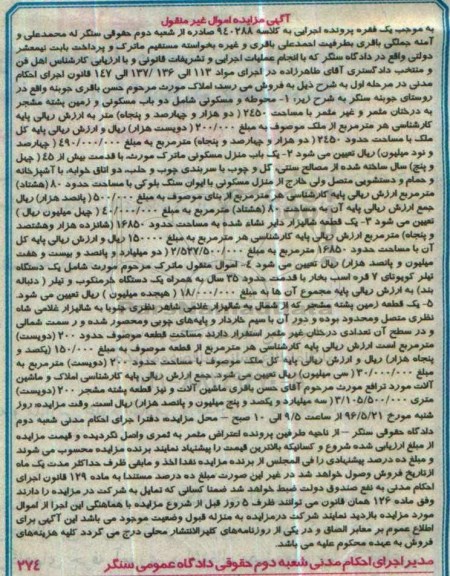 آگهی مزایده اموال غیر منقول
به موجب یک فقره پرونده اجرایی به کلاسه ۹۴۰۲۸۸ صادره از شعبه دوم حقوقی سنگر له محمدعلی و
آمنه جملگی باقری بطرفیت احمدعلی باقری و غیره بخواسته مستقیم ماترک و پرداخت بابت نیمعشر
دولتی واقع در دادگاه سنگر که با انجام عملیات اجرایی و تشریفات قانونی و با ارزیابی کارشناس اهل فن
و منتخب دادگستری آقای طاهرزاده در اجرای مواد ۱۱۳ الی ۱۳۶ /۱۳۷ الی ۱۴۷ قانون اجرای احکام
مدنی در مرحله اول به شرح ذیل به فروش می رسد: املاک مورث مرحوم حسن باقری جوبنه واقع در
روستای جوبنه سنگر به شرح زیر: ۱- محوطه و مسکونی شامل دو باب مسکونی و زمین پشته مشجر
به درختان مثمر و غیر مثمر با مساحت ۲۴۵۰ (دو هزار و چهارصد و پنجاه) متر به ارزش ریالی پایه
کارشناسی هر مترمربع از ملک موصوف به مبلغ ۲۰۰/۰۰۰ (دویست هزار) ریال و ارزش ریالی پایه کل
ملک با مساحت حدود ۲۴۵۰ (دو هزار و چهارصد و پنجاه) مترمربع به مبلغ ۴۹۰/۰۰۰/۰۰۰ (چهارصد
و نود میلیون) ریال تعیین می شود ۲- یک باب منزل مسکونی ماترک مورث، با قدمت بیش از ۴۵ (چهل
و پنج) سال ساخته شده از مصالح سنتی، گل و چوب با سربندی چوب و حلب، دو اتاق خوابه، با آشپزخانه
و حمام و دستشویی متصل ولی خارج از منزل مسکونی با ایوان سنگ بلوکی با مساحت حدود ۸۰ (هشتاد)
مترمربع ارزش ریالی پایه کارشناسی هر مترمربع از بنای موصوف به مبلغ ۵۰۰/۰۰۰ (پانصد هزار) ریال
جمع ارزش ریالی پایه آن به مساحت ۸۰ (هشتاد) مترمربع به مبلغ ۴۰/۰۰۰/۰۰۰ (چهل میلیون ریال)
تعیین می شود ۳- یک قطعه شالیزار دایر نشاء شده به مساحت حدود ۱۶۸۵۰ (شانزده هزار وهشتصد
و پنجاه) مترمربع ارزش ریالی پایه کارشناسی هر مترمربع به مبلغ ۱۵۰۰۰۰ ریال و ارزش ریالی پایه کل
آن با مساحت حدود ۱۶۸۵۰ مترمربع به مبلغ ۲/۵۲۷/۵۰۰/۰۰۰ (دو میلیارد و پانصد و بیست و هفت
میلیون و پانصد هزار) ریال تعیین می شود ۴- اموال منقول ماترک مرحوم مورث شامل یک دستگاه
تیلر کوبوتای ۷ قره اسب بخار با قدمت حدود ۳۵ سال به همراه یک دستگاه خرمنکوب و تیلر (دنباله
بند) به ارزش ریالی پایه مجموع آن ها به مبلغ ۱۸/۰۰۰/۰۰۰ (هیجده میلیون) ریال تعیین می شود.
۵- یک قطعه زمین پشته مشجر که از شمال به شالیزار غلامی شاهر نظری جنوبا به شالیزار غلامی شاه
نظری متصل ومحدود بوده و دور آن با سیم خاردار و پایه‌های چوبی ومحصور شده و ر سمت شمالی
و در سطح آن تعدادی درختان غیر مثمر استقرار دارند مساحت قطعه موصوف حدود ۲۰۰ (دویست)
مترمربع است ارزش ریالی پایه کارشناسی هر مترمربع از قطعه موصوف به مبلغ ۱۵۰/۰۰۰ (یکصد و
پنجاه هزار) ریال و ارزش ریالی پایه کل ملک موصوف با مساحت حدود ۲۰۰ (دویست) مترمربع به
مبلغ ۳۰/۰۰۰/۰۰۰ (سی میلیون) ریال تعیین می شود جمع ارزش ریالی پایه کارشناسی املاک و ماشین
آلات مورد ترافع مورث مرحوم آقای حسن باقری ماشین آلات و نیز قطعه پشته مشجر ۲۰۰ (دویست)
متری ۳/۱۰۵/۵۰۰/۰۰۰ (سه میلیارد و یکصد و پنج میلیون و پانصد هزار) ریال است. وقت مزایده: روز
شنبه مورخ ۹۶/۵/۲۱ از ساعت ۹/۵ الی ۱۰ صبح – محل مزایده: دفتر اجرای احکام مدنی شعبه دوم
دادگاه حقوقی سنگر – از ناحیه طرفین پرونده اعتراض مثمر به ثمری واصل نگردیده و قیمت مزایده
از مبلغ ارزیابی شده شروع و کسانیکه بالاترین قیمت را پیشنهاد نمایند برنده مزایده محسوب می شوند
و مبلغ ده درصد پیشنهادی را فی المجلس از برنده مزایده نقدا اخذ و مابقی ظرف حداکثر مدت یک ماه
از تاریخ فروش وصول خواهد شد در غیر این صورت مبلغ ده درصد مستندا به ماده ۱۲۹ قانون اجرای
احکام مدنی به نفع صندوق دولت ضبط خواهد شد ضمنا کسانی که تمایل به شرکت در مزایده را دارند
وفق ماده ۱۲۶ همان قانون می توانند ظرف ۵ روز قبل از شروع مزایده با هماهنگی این اجرا از اموال
مورد مزایده بازدید نمایند شرکت درمزایده به منزله قبول وضعیت موجود می باشد این آگهی برای
اطلاع عموم بر معابر الصاق و در یکی از روزنامه‌های کثیرالانتشار محلی درج می گردد کلیه هزینه‌های
فروش به عهده محکوم علیه می باشد.
مدیر اجرای احکام مدنی شعبه دوم حقوقی دادگاه عمومی سنگر
۲۷۴